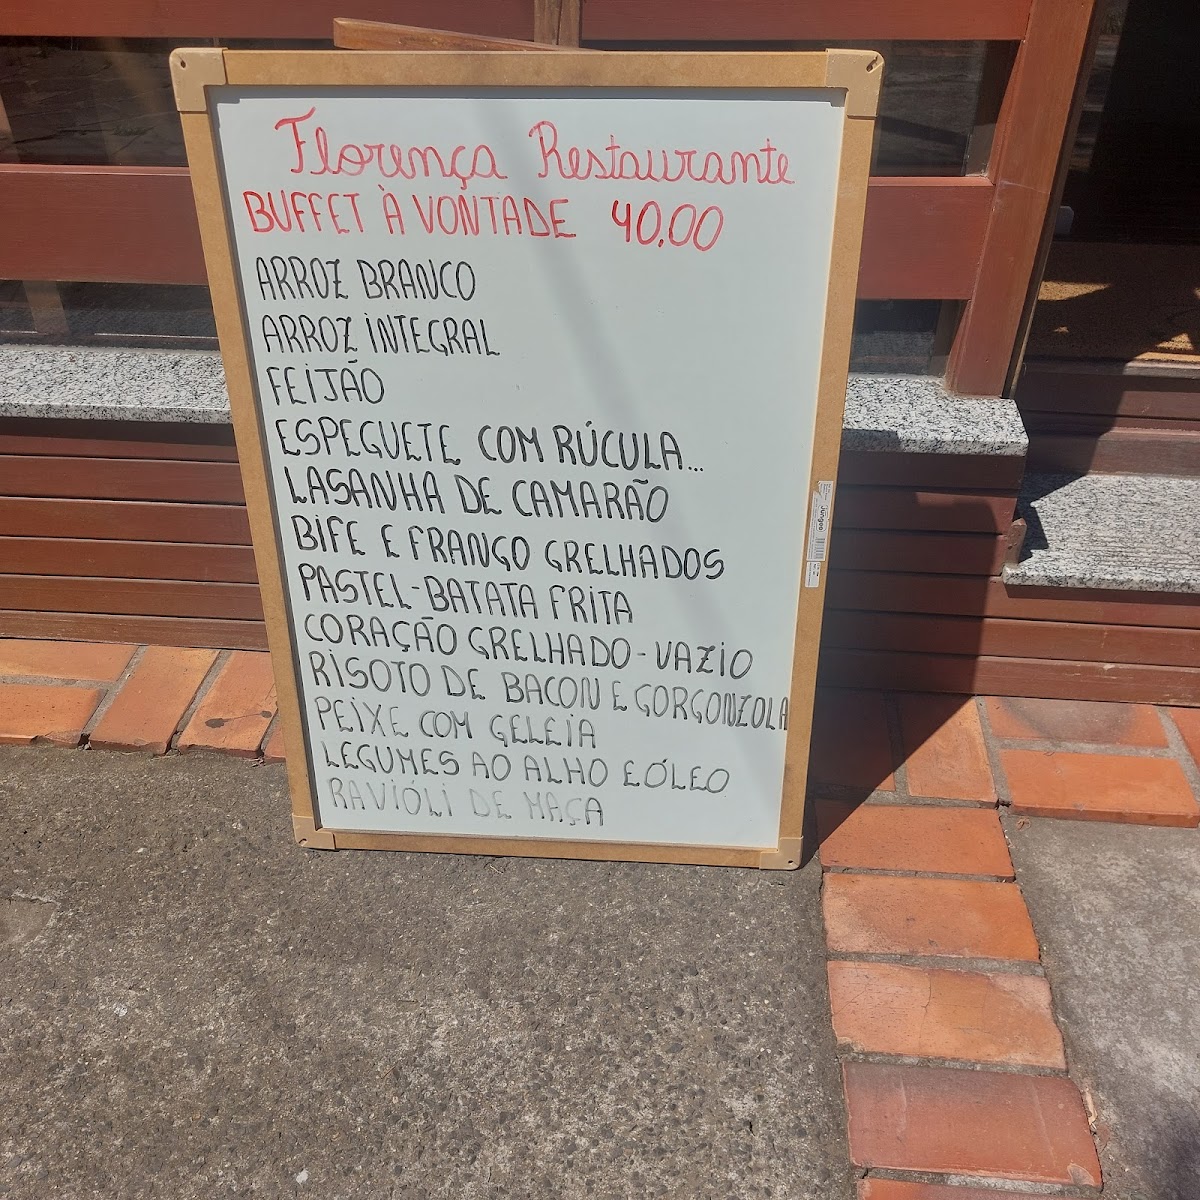 Florença Restaurante
BUFFET À VONTADE 40,00
ARROZ BRANCO
ARROZ INTEGRAL
FEIJÃO
ESPEGUETE COM RÚCULA...
LASANHA DE CAMARÃO
BIFE E FRANGO GRELHADOS
PASTEL-BATATA FRITA
CORAÇÃO GRELHADO-VAZIO
RISOTO DE BACON E GORGONZOLA
PEIXE COM GELEIA
LEGUMES AO ALHO E ÓLEO
RAVIÓLI DE MAÇA
Jungso